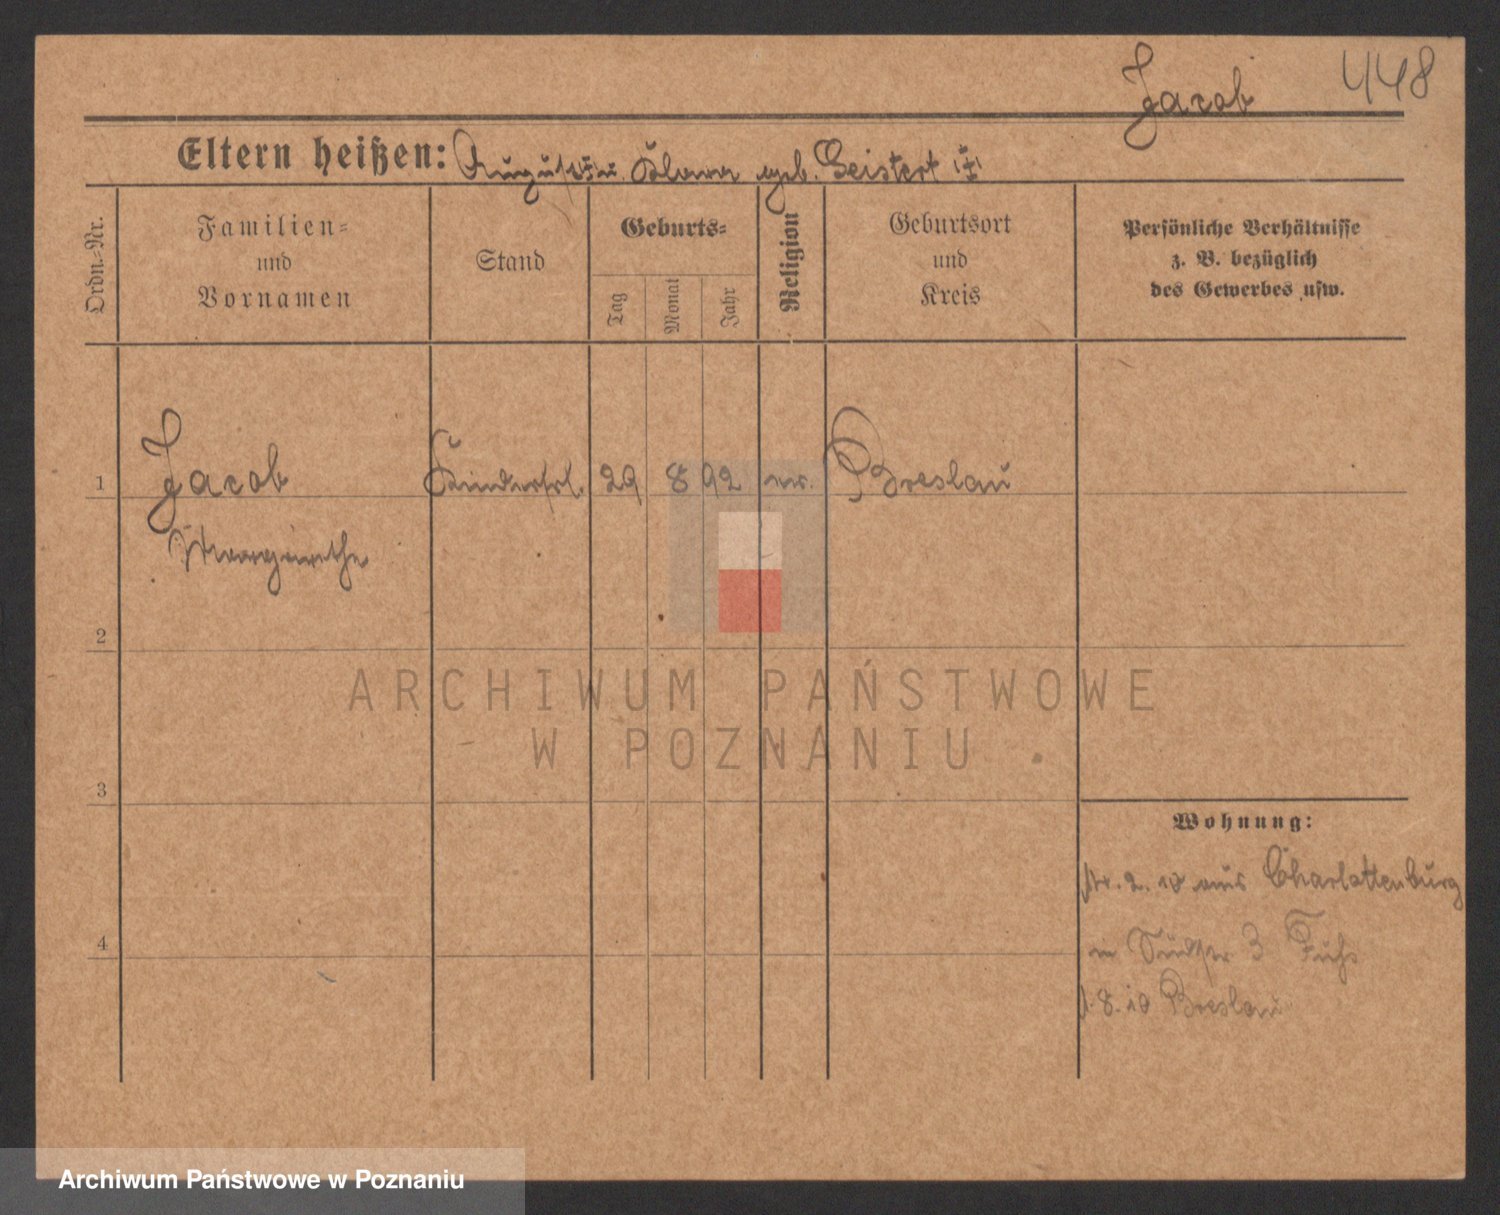 Jacob 448
Eltern heißen: August u. Klara geb. Geistert
Ordn.-Nr.
Familien-
und
Vornamen
Stand
Geburts-
Tag
Monat
Jahr
Religion
Geburtsort
und
Kreis
Persönliche Verhältnisse
z. B. bezüglich
des Gewerbes usw.
1 Jacob Kinderfrl. 29 8 92 ev. Breslau
Margarethe
2
3
4
Wohnung:
2. 10 aus Charlottenburg
in 3 Fuhs
8. 10 Breslau
ARCHIWUM PAŃSTWOWE
W POZNANIU
Archiwum Państwowe w Poznaniu